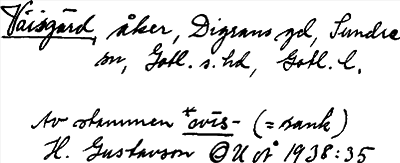 Väisgärd, åker, Digrans gd, Sundre
sn, Gotl. s. hd, Gotl. l.
Av stammen *ovīs- (= sank)
H. Gustavson GUÅ 1938:35